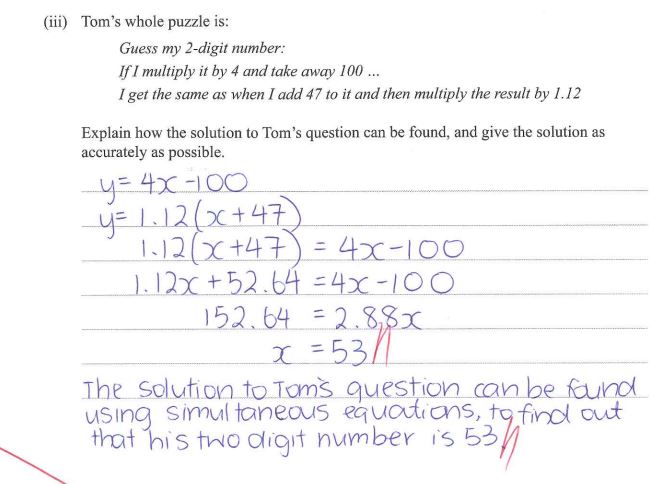 (iii) Tom's whole puzzle is:
Guess my 2-digit number:
If I multiply it by 4 and take away 100 ...
I get the same as when I add 47 to it and then multiply the result by 1.12
Explain how the solution to Tom's question can be found, and give the solution as
accurately as possible.
y = 4x -100
y = 1.12(x+47)
1.12(x+47) = 4x-100
1.12x + 52.64 = 4x -100
152.64 = 2.88x
x = 53
The solution to Tom's question can be found
using simultaneous equations, to find out
that his two digit number is 53